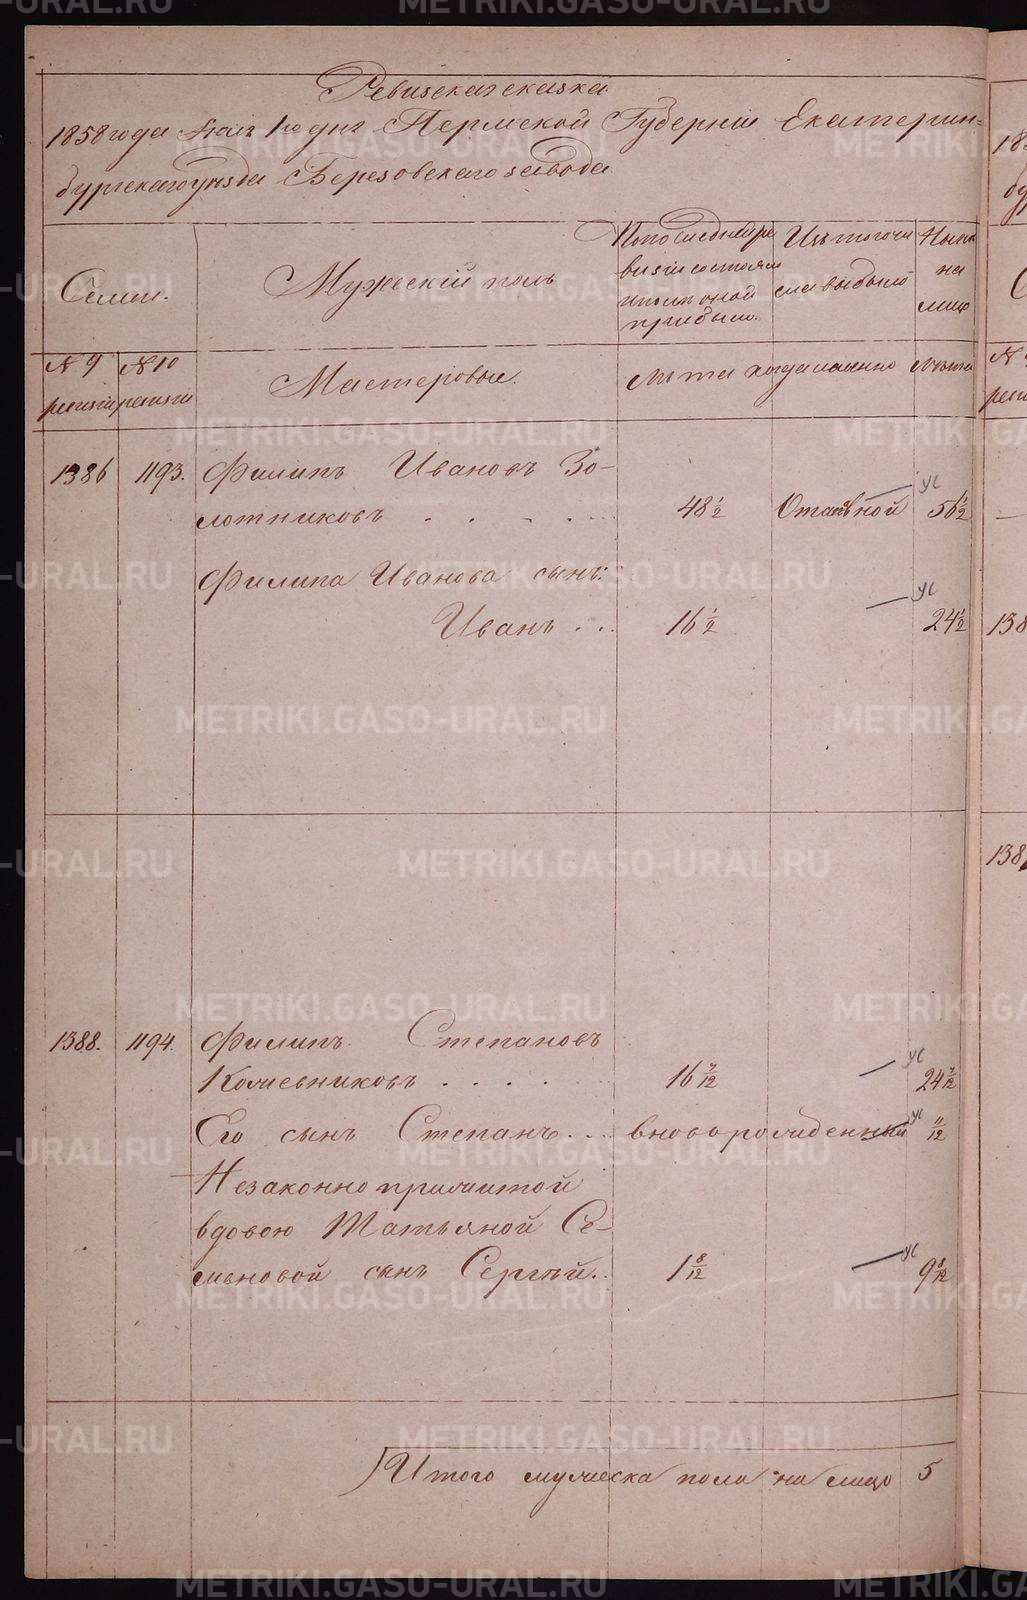 Ревизская сказка
1858 года Маія 1го дня Пермской Губерніи Екатерин-
бургскаго уезда Березовскаго завода
Семьи.
Мужескій полъ
По последней ре
визіи состояло
и после оной
прибыло.
Изъ того чи
сла выбыло
Ныне
на
лицо
№ 9
ревизіи
№ 10
ревизіи
Мастеровые.
Лета
когда именно
Лета
1386 1193. Филипъ Ивановъ Зо-
лотниковъ . . . . . 48 1/2 Отставной 56 1/2
Филипа Иванова сынъ:
Иванъ . . . 16 1/2 24 1/2
1388. 1194. Филипъ Степановъ
Кожевниковъ . . . . 16 7/12 24 7/12
Его сынъ Степанъ . . . вновь рожденный 11/12
Незаконно прижитой
вдовою Татьяной Се-
меновой сынъ Сергей . . 1 8/12 9 8/12
Итого мужеска пола на лицо 5
METRIKI.GASO-URAL.RU